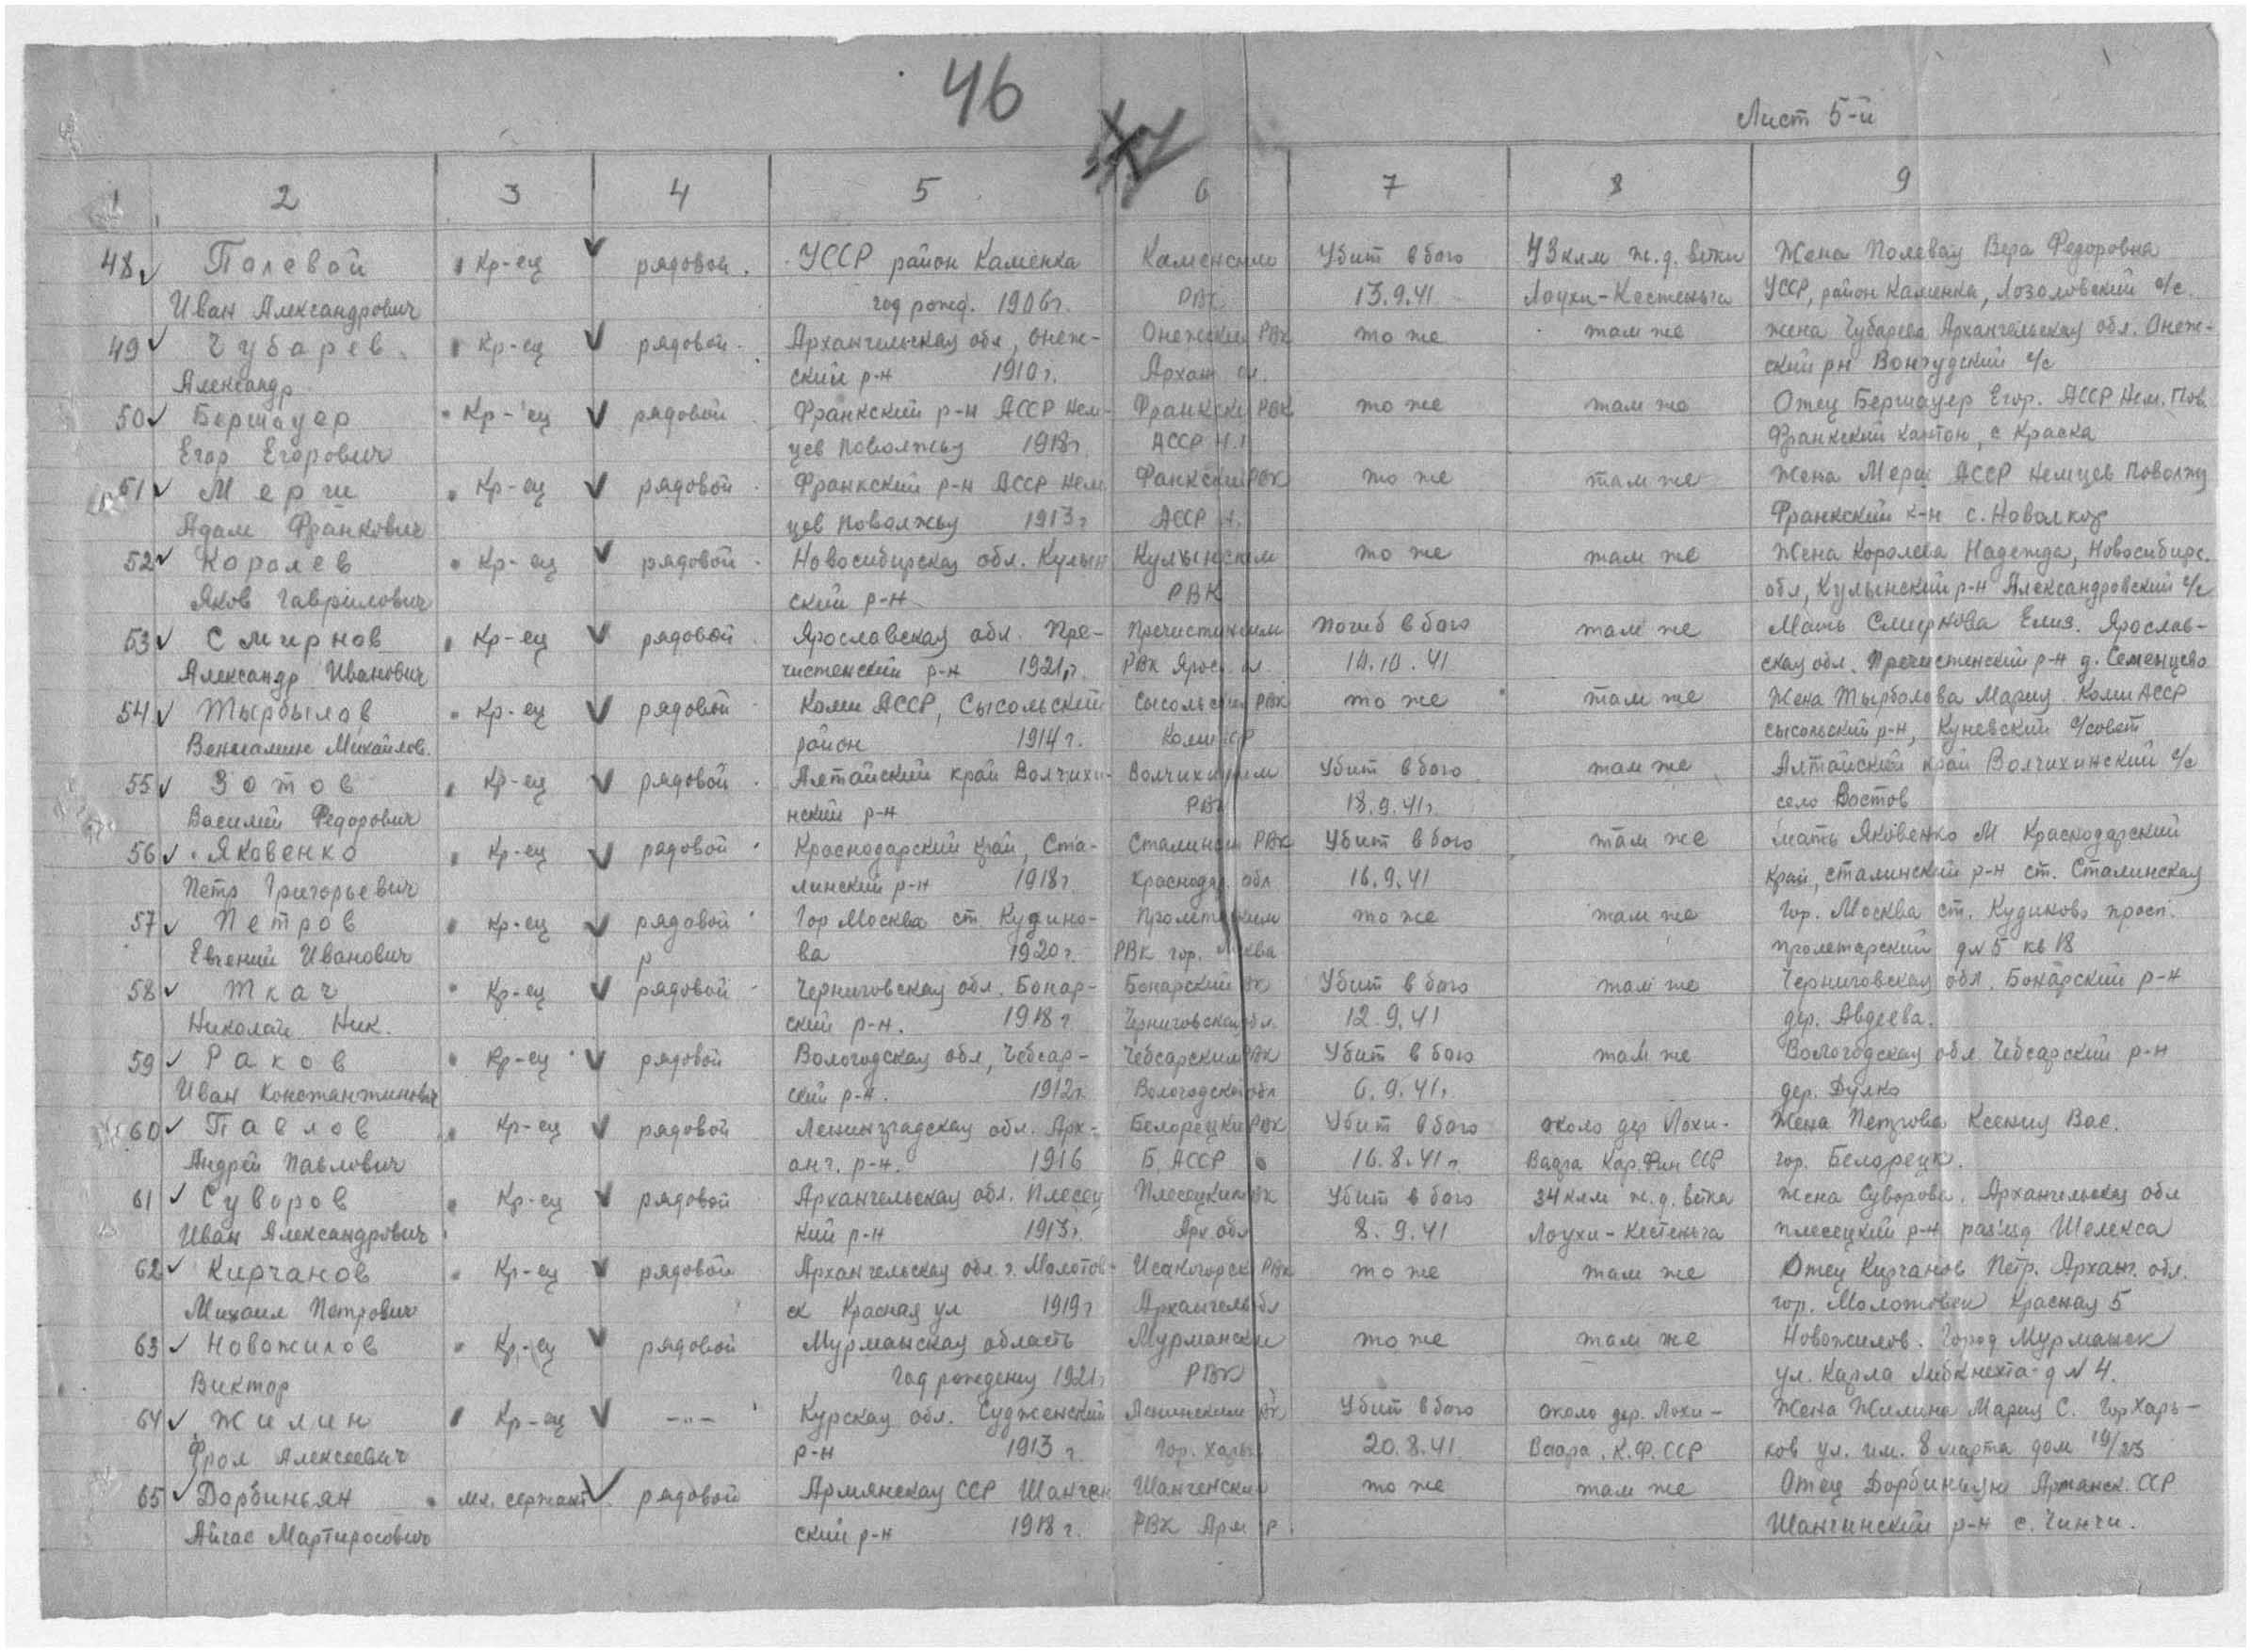 46
Лист 5-й
1 2 3 4 5 6 7 8 9
48 Полевой Кр-ец рядовой УССР район Каменка Каменским Убит в бою 43 клм ж.д. ветки Жена Полевая Вера Федоровна
Иван Александрович год рожд. 1906г. РВК 13.9.41 Лоухи-Кестеньга УССР, район Каменка, Лозоловский с/с.
49 Чубарев Кр-ец рядовой Архангельская обл, Онеж- Онежским РВК то же там же жена Чубарева Архангельская обл. Онеж-
Александр ский р-н 1910г. Арханг. ский рн Вонгудский с/с
50 Бершауер Кр-ец рядовой Франкский р-н АССР Нем- Франкски РВК то же там же Отец Бершауер Егор. АССР Нем. Пов.
Егор Егорович цев Поволжья 1918г АССР Франкский кантон, с Краска
51 Мерш Кр-ец рядовой Франкский р-н АССР Нем Фанкским РВК то же там же Жена Мерш АССР Немцев Поволжу
Адам Франкович цев Поволжья 1913г АССР Франкский к-н с.
52 Королев Кр-ец рядовой Новосибирская обл. Кулын Кулынским то же там же Жена Королева Надежда, Новосибирс.
Яков Гаврилович ский р-н РВК обл, Кулынский р-н Александровский с/с
53 Смирнов Кр-ец рядовой Ярославская обл. Пре- Пречистинским Погиб в бою там же Мать Смирнова Елиз. Ярослав-
Александр Иванович чистенский р-н 1921г. РВК Яросл. 10.10.41 ская обл. Пречистенский р-н д. Семенцево
54 Тырбылов Кр-ец рядовой Коми АССР, Сысольский Сысольским РВК то же там же Жена Тырболова Мария. Коми АССР
Вениамин Михайлов. район 1914г. Коми сысольский р-н, Куневский с/совет
55 Зотов Кр-ец рядовой Алтайский край Волчихи- Волчихинским Убит в бою там же Алтайский край Волчихинский с/с
Василий Федорович нский р-н РВК 18.9.41г село Востов
56 Яковенко Кр-ец рядовой Краснодарский край, Ста- Сталинским РВК Убит в бою там же мать Яковенко М. Краснодарский
Петр Григорьевич линский р-н 1918г Краснодар. обл 16.9.41 край, сталинский р-н ст. Сталинская
57 Петров Кр-ец рядовой Гор Москва ст. Кудино- Пролетарским то же там же Гор. Москва ст. Кудиново просп.
Евгений Иванович р ва 1920г. РВК гор. Москва пролетарский д№5 кв 18
58 Ткач Кр-ец рядовой Черниговская обл. Бонар- Бонарский РВК Убит в бою там же Черниговская обл. Бонарский р-н
Николай Ник. ский р-н. 1918г Черниговская обл. 12.9.41 дер. Авдеева.
59 Раков Кр-ец рядовой Вологодская обл, Чебсар- Чебсарским РВК Убит в бою там же Вологодская обл Чебсарский р-н
Иван Константинович ский р-н. 1912г. Вологодской обл 6.9.41г. дер. Дулко
60 Павлов Кр-ец рядовой Ленинградская обл. Арх- Белорецким РВК Убит в бою около дер Лохи- Жена Петрова Ксения Вас.
Андрей Павлович анг. р-н. 1916 Б. АССР 16.8.41г Ваара Кар. Фин ССР гор. Белорецк.
61 Суворов Кр-ец рядовой Архангельская обл. Плесец Плесецким РВК Убит в бою 34 клм ж.д. ветка жена Суворова. Архангельская обл
Иван Александрович кий р-н 1913г. Арх обл 8.9.41 Лоухи-Кестеньга плесецкий р-н раз'езд Шелекса
62 Кирчанов Кр-ец рядовой Архангельская обл. г. Молотов- Исакогорск РВК то же там же Отец Кирчанов Петр. Арханг. обл.
Михаил Петрович ск Красная ул 1919г Архангель обл гор. Молотовск Красная 5
63 Новожилов Кр-ец рядовой Мурманская область Мурмански то же там же Новожилов. Город Мурманск
Виктор Год рождения 1921г РВК ул. Карла Либкнехта д№4.
64 Жилин Кр-ец -"- Курская обл. Судженский Ленинским РВК Убит в бою около дер. Лохи- Жена Жилина Мария С. Гор Харь-
Фрол Алексеевич р-н 1913г Гор. Харьк. 20.8.41 Ваара. К.Ф.ССР ков ул. им. 8 марта дом 19/23
65 Дорбиньян мл. сержант рядовой Армянская ССР Шанген Шангенским то же там же Отец Дорбиньян Армянск. ССР
Айгас Мартиросович ский р-н 1918г. РВК Арм Шангинский р-н с. Чинчи.